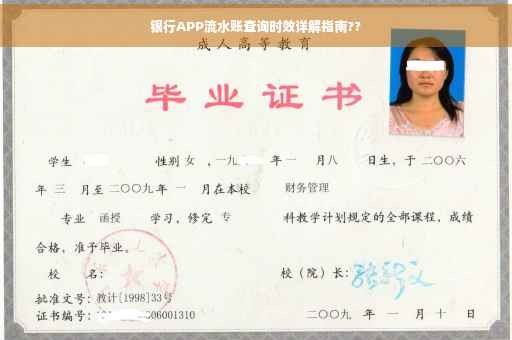 银行APP流水账查询时效详解指南??
成人高等教育
毕业证书
学生 性别 女 ,一九 年 一 月八 日生,于二〇〇六
年 三 月至二〇〇九年 一 月在本校 财务管理
专业 函授 学习,修完 专 科教学计划规定的全部课程,成绩
合格,准予毕业。
校 名: 校(院)长:
批准文号:教计[1998]33号
证书编号: 06001310 二〇〇九 年 一 月 十 日